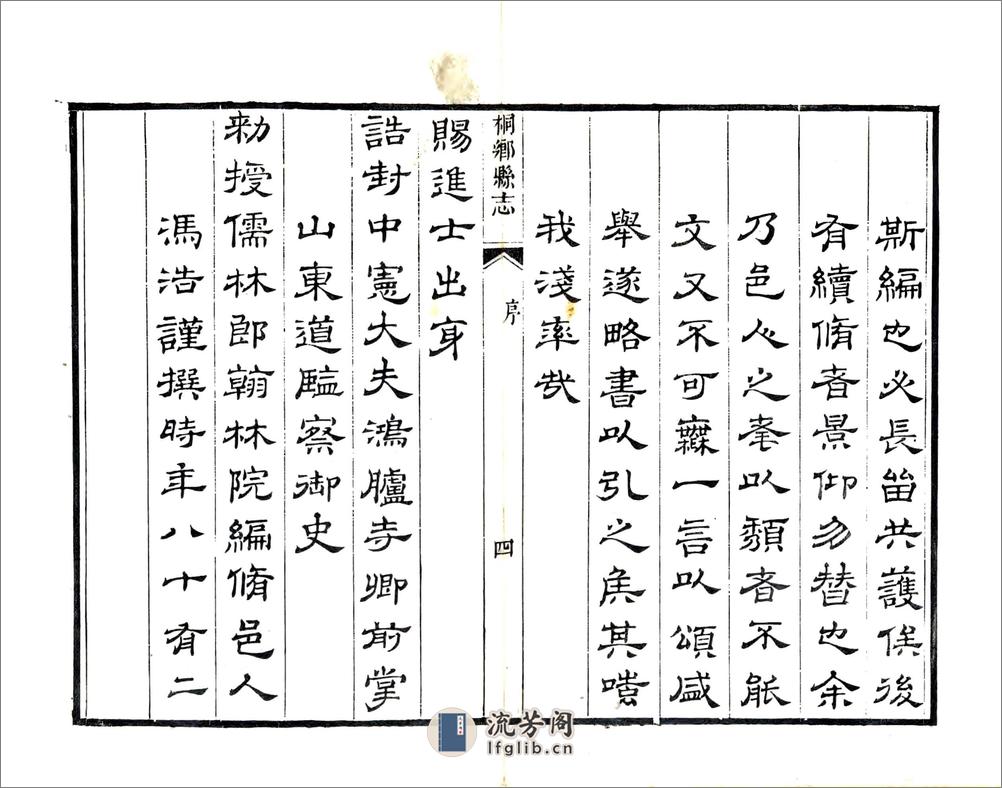 斯編也必長留共護俟後
有續脩者景仰勿替也余
乃邑人之耄以頹者不能
文又不可無一言以頌盛
舉遂略書以引之庶其嗤
我淺率哉
桐鄉縣志
序
四
賜進士出身
誥封中憲大夫鴻臚寺卿前掌
山東道監察御史
勅授儒林郎翰林院編脩邑人
馮浩謹撰時年八十有二
流芳阁
lfglib.cn